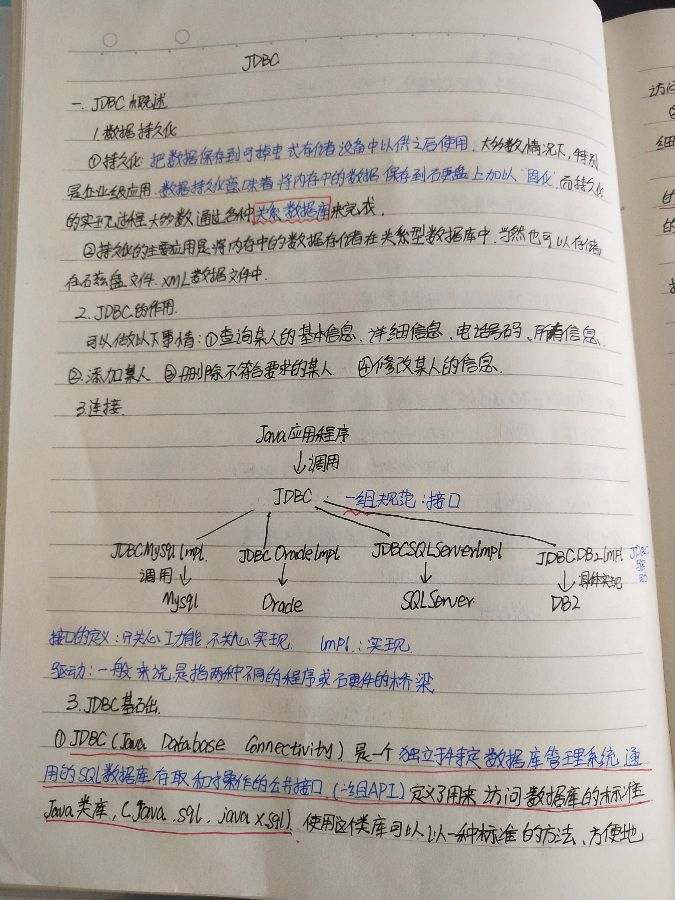 JDBC
一. JDBC概述
1.数据持久化
①持久化:把数据保存到可掉电式存储设备中以供之后使用.大多数情况下,特别
是企业级应用.数据持久化意味着将内存中的数据保存到硬盘上加以"固化",而持久化
的实现过程大多数通过各种关系数据库来完成.
②持久化的主要应用是将内存中的数据存储在关系型数据库中.当然也可以存储
在磁盘文件.XML数据文件中.
2. JDBC的作用.
可以做以下事情:①查询某人的基本信息、详细信息、电话号码、所有信息.
②.添加某人 ③.删除不符合要求的某人. ④.修改某人的信息.
3.连接.
Java应用程序
↓调用
JDBC : 一组规范:接口
JDBCMysqlImpl. JDBCOracleImpl JDBCSQLServerImpl JDBCDB2Impl JDBC驱动
调用↓ ↓ ↓ ↓具体实现
Mysql Oracle SQLServer. DB2
接口的定义:只关心功能 不关心实现. Impl.:实现.
驱动:一般来说是指两种不同的程序或硬件的桥梁
3. JDBC基础.
①JDBC(Java Database Connectivity)是一个独立于特定数据库管理系统、通
用的SQL数据库存取和操作的公共接口(一组API)定义了用来访问数据库的标准
Java类库,(java.sql, javax.sql).使用这个类库可以以一种标准的方法、方便地